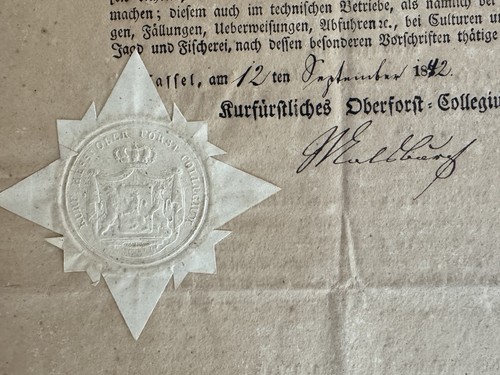 machen; diesem auch im technischen Betriebe, als nämlich bei
gen, Fällungen, Ueberweisungen, Abfuhren ꝛc., bei Culturen u
Jagd und Fischerei, nach dessen besonderen Vorschriften thätige
Cassel, am 12 ten September 1842.
Kurfürstliches Oberforst-Collegiu
Malsburg
KUR HESS OBER FORST COLLEGIUM